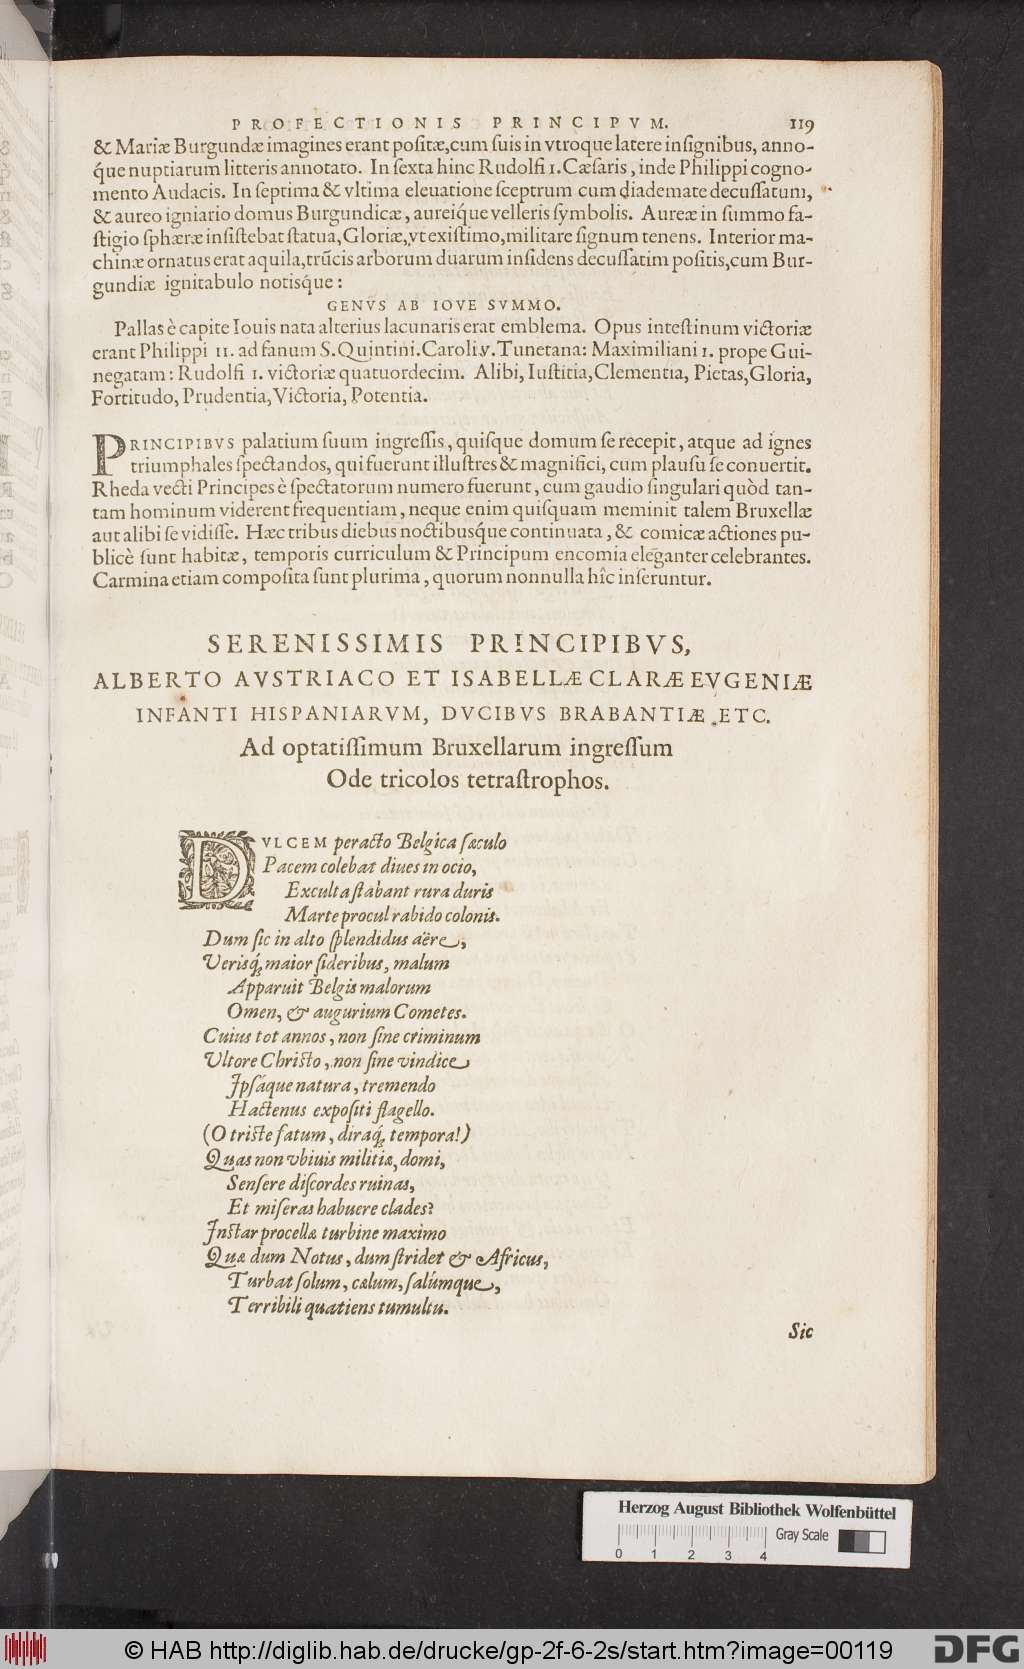 PROFECTIONIS PRINCIPVM. 119
& Mariæ Burgundæ imagines erant positæ, cum suis in vtroque latere insignibus, anno-
q́ue nuptiarum litteris annotato. In sexta hinc Rudolfi 1. Cæsaris, inde Philippi cogno-
mento Audacis. In septima & vltima eleuatione sceptrum cum diademate decussatum,
& aureo igniario domus Burgundicæ, aureiq́ue velleris symbolis. Aureæ in summo fa-
stigio sphæræ insistebat statua, Gloriæ, vt existimo, militare signum tenens. Interior ma-
chinæ ornatus erat aquila, trũcis arborum duarum insidens decussatim positis, cum Bur-
gundiæ ignitabulo notisq́ue:
GENVS AB IOVE SVMMO.
Pallas è capite Iouis nata alterius lacunaris erat emblema. Opus intestinum victoriæ
erant Philippi 11. ad fanum S. Quintini. Caroli. v. Tunetana: Maximiliani 1. prope Gui-
negatam: Rudolfi 1. victoriæ quatuordecim. Alibi, Iustitia, Clementia, Pietas, Gloria,
Fortitudo, Prudentia, Victoria, Potentia.
PRINCIPIBVS palatium suum ingressis, quisque domum se recepit, atque ad ignes
triumphales spectandos, qui fuerunt illustres & magnifici, cum plausu se conuertit.
Rheda vecti Principes è spectatorum numero fuerunt, cum gaudio singulari quòd tan-
tam hominum viderent frequentiam, neque enim quisquam meminit talem Bruxellæ
aut alibi se vidisse. Hæc tribus diebus noctibusq́ue continuata, & comicæ actiones pu-
blicè sunt habitæ, temporis curriculum & Principum encomia eleganter celebrantes.
Carmina etiam composita sunt plurima, quorum nonnulla hîc inseruntur.
SERENISSIMIS PRINCIPIBVS,
ALBERTO AVSTRIACO ET ISABELLÆ CLARÆ EVGENIÆ
INFANTI HISPANIARVM, DVCIBVS BRABANTIÆ, ETC.
Ad optatissimum Bruxellarum ingressum
Ode tricolos tetrastrophos.
DVLCEM peracto Belgica sæculo
Pacem colebat diues in ocio,
Exculta stabant rura duris
Marte procul rabido colonis.
Dum sic in alto splendidus aëre,
Verisq́; maior sideribus, malum
Apparuit Belgis malorum
Omen, & augurium Cometes.
Cuius tot annos, non sine criminum
Vltore Christo, non sine vindice
Ipsáque natura, tremendo
Hactenus expositi flagello.
(O triste fatum, diraq́; tempora!)
Quas non vbiuis militiæ, domi,
Sensere discordes ruinas,
Et miseras habuere clades?
Instar procellæ turbine maximo
Quæ dum Notus, dum stridet & Africus,
Turbat solum, cælum, salúmque,
Terribili quatiens tumultu.
Sic
Herzog August Bibliothek Wolfenbüttel
Gray Scale
0 1 2 3 4
© HAB http://diglib.hab.de/drucke/gp-2f-6-2s/start.htm?image=00119
DFG